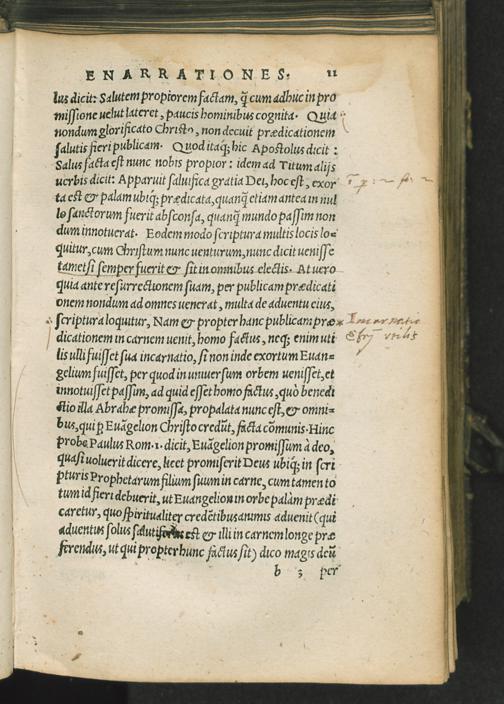 ENARRATIONES. 11
lus dicit: Salutem propiorem factam, q̃ cum adhuc in pro
missione uelut lateret, paucis hominibus cognita. Quia
nondum glorificato Christo, non decuit prædicationem
salutis fieri publicam. Quod itaq; hic Apostolus dicit:
Salus facta est nunc nobis propior: idem ad Titum alijs
uerbis dicit: Apparuit salutifica gratia Dei, hoc est, exor
ta est & palam ubiq; prædicata, quanq̃ etiam antea in nul
lo sanctorum fuerit absconsa, quanq̃ mundo passim non
dum innotuerat. Eodem modo scriptura multis locis lo=
quitur, cum Christum nunc venturum, nunc dicit uenisse
tametsi semper fuerit & sit in omnibus electis. At uero
quia ante resurrectionem suam, per publicam prædicati
onem nondum ad omnes uenerat, multa de aduentu eius,
scriptura loquitur, Nam & propter hanc publicam præ=
dicationem in carnem uenit, homo factus, neq; enim uti
lis ulli fuisset sua incarnatio, si non inde exortum Euan=
gelium fuisset, per quod in uniuersum orbem uenisset, et
innotuisset passim, ad quid esset homo factus, quo benedi
ctio illa Abrahæ promissa, propalata nunc est, & omni=
bus, qui p Euãgelion Christo credũt, facta cõmunis. Hinc
probe Paulus Rom. 1. dicit, Euãgelion promissum à deo,
quasi uoluerit dicere, licet promiserit Deus ubiq; in scri
pturis Prophetarum filium suum in carne, cum tamen to
tum id fieri debuerit, ut Euangelion in orbe palàm prædi
caretur, quo spiritualiter credẽtibus animis aduenit (qui
aduentus solus salutiferus est & illi in carnem longe præ
ferendus, ut qui propter hunc factus sit) dico magis deũ
b 3 per
Incarnatio
utilis